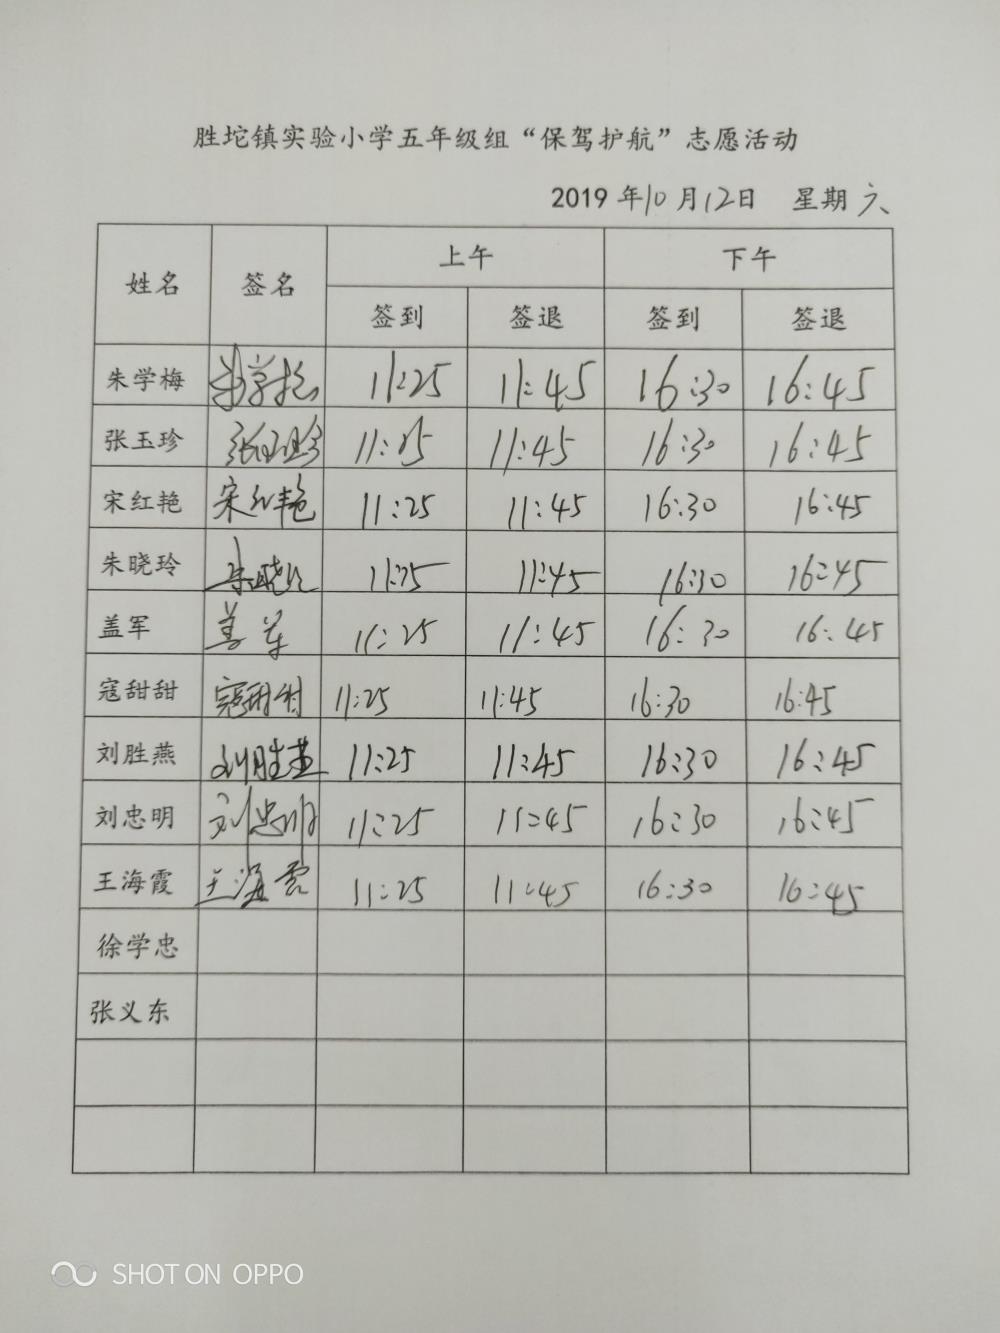 胜坨镇实验小学五年级组“保驾护航”志愿活动
2019年10月12日 星期六
姓名 签名 上午 下午
签到 签退 签到 签退
朱学梅 朱学梅 11:25 11:45 16:30 16:45
张玉珍 张玉珍 11:25 11:45 16:30 16:45
宋红艳 宋红艳 11:25 11:45 16:30 16:45
朱晓玲 朱晓玲 11:25 11:45 16:30 16:45
盖军 盖军 11:25 11:45 16:30 16:45
寇甜甜 寇甜甜 11:25 11:45 16:30 16:45
刘胜燕 刘胜燕 11:25 11:45 16:30 16:45
刘忠明 刘忠明 11:25 11:45 16:30 16:45
王海霞 王海霞 11:25 11:45 16:30 16:45
徐学忠
张义东
SHOT ON OPPO